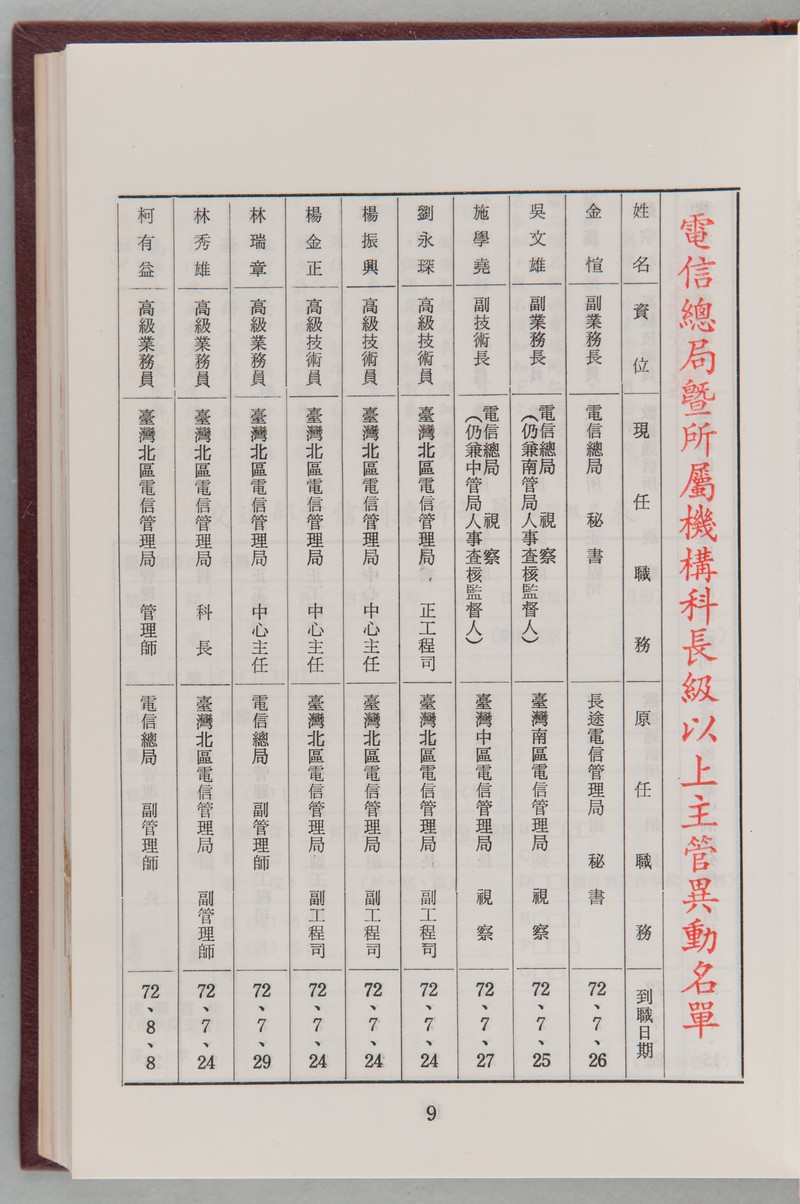 電信總局暨所屬機構科長級以上主管異動名單
姓名 資位 現任職務 原任職務 到職日期
金愃 副業務長 電信總局 秘書 長途電信管理局 秘書 72、7、26
吳文雄 副業務長 電信總局 視察 (仍兼南管局人事查核監督人) 臺灣南區電信管理局 視察 72、7、25
施學堯 副技術長 電信總局 視察 (仍兼中管局人事查核監督人) 臺灣中區電信管理局 視察 72、7、27
劉永琛 高級技術員 臺灣北區電信管理局 正工程司 臺灣北區電信管理局 副工程司 72、7、24
楊振興 高級技術員 臺灣北區電信管理局 中心主任 臺灣北區電信管理局 副工程司 72、7、24
楊金正 高級技術員 臺灣北區電信管理局 中心主任 臺灣北區電信管理局 副工程司 72、7、24
林瑞章 高級業務員 臺灣北區電信管理局 中心主任 電信總局 副管理師 72、7、29
林秀雄 高級業務員 臺灣北區電信管理局 科長 臺灣北區電信管理局 副管理師 72、7、24
柯有益 高級業務員 臺灣北區電信管理局 管理師 電信總局 副管理師 72、8、8
9